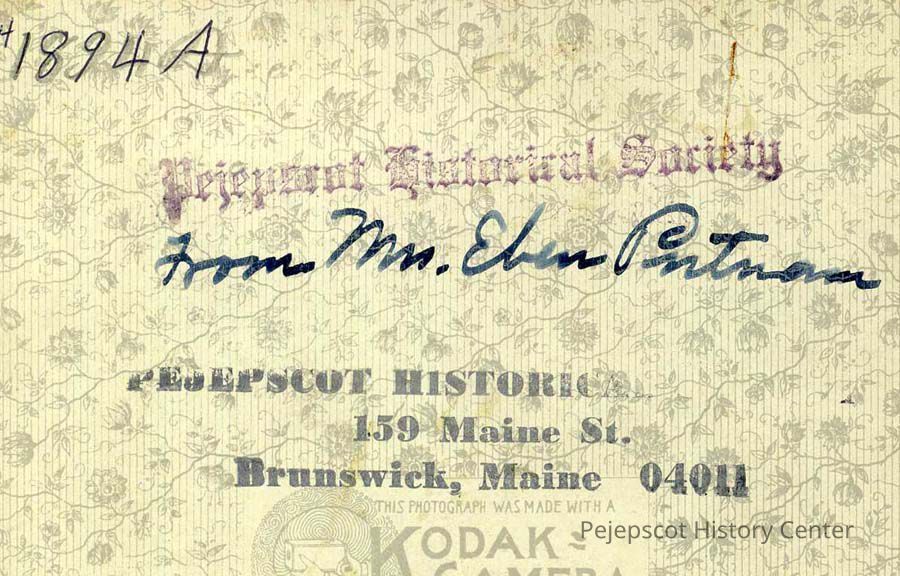 1894 A
Pejepscot Historical Society
From Mrs. Eben Putnam
PEJEPSCOT HISTORICAL
159 Maine St.
Brunswick, Maine 04011
THIS PHOTOGRAPH WAS MADE WITH A
KODAK
CAMERA
Pejepscot History Center